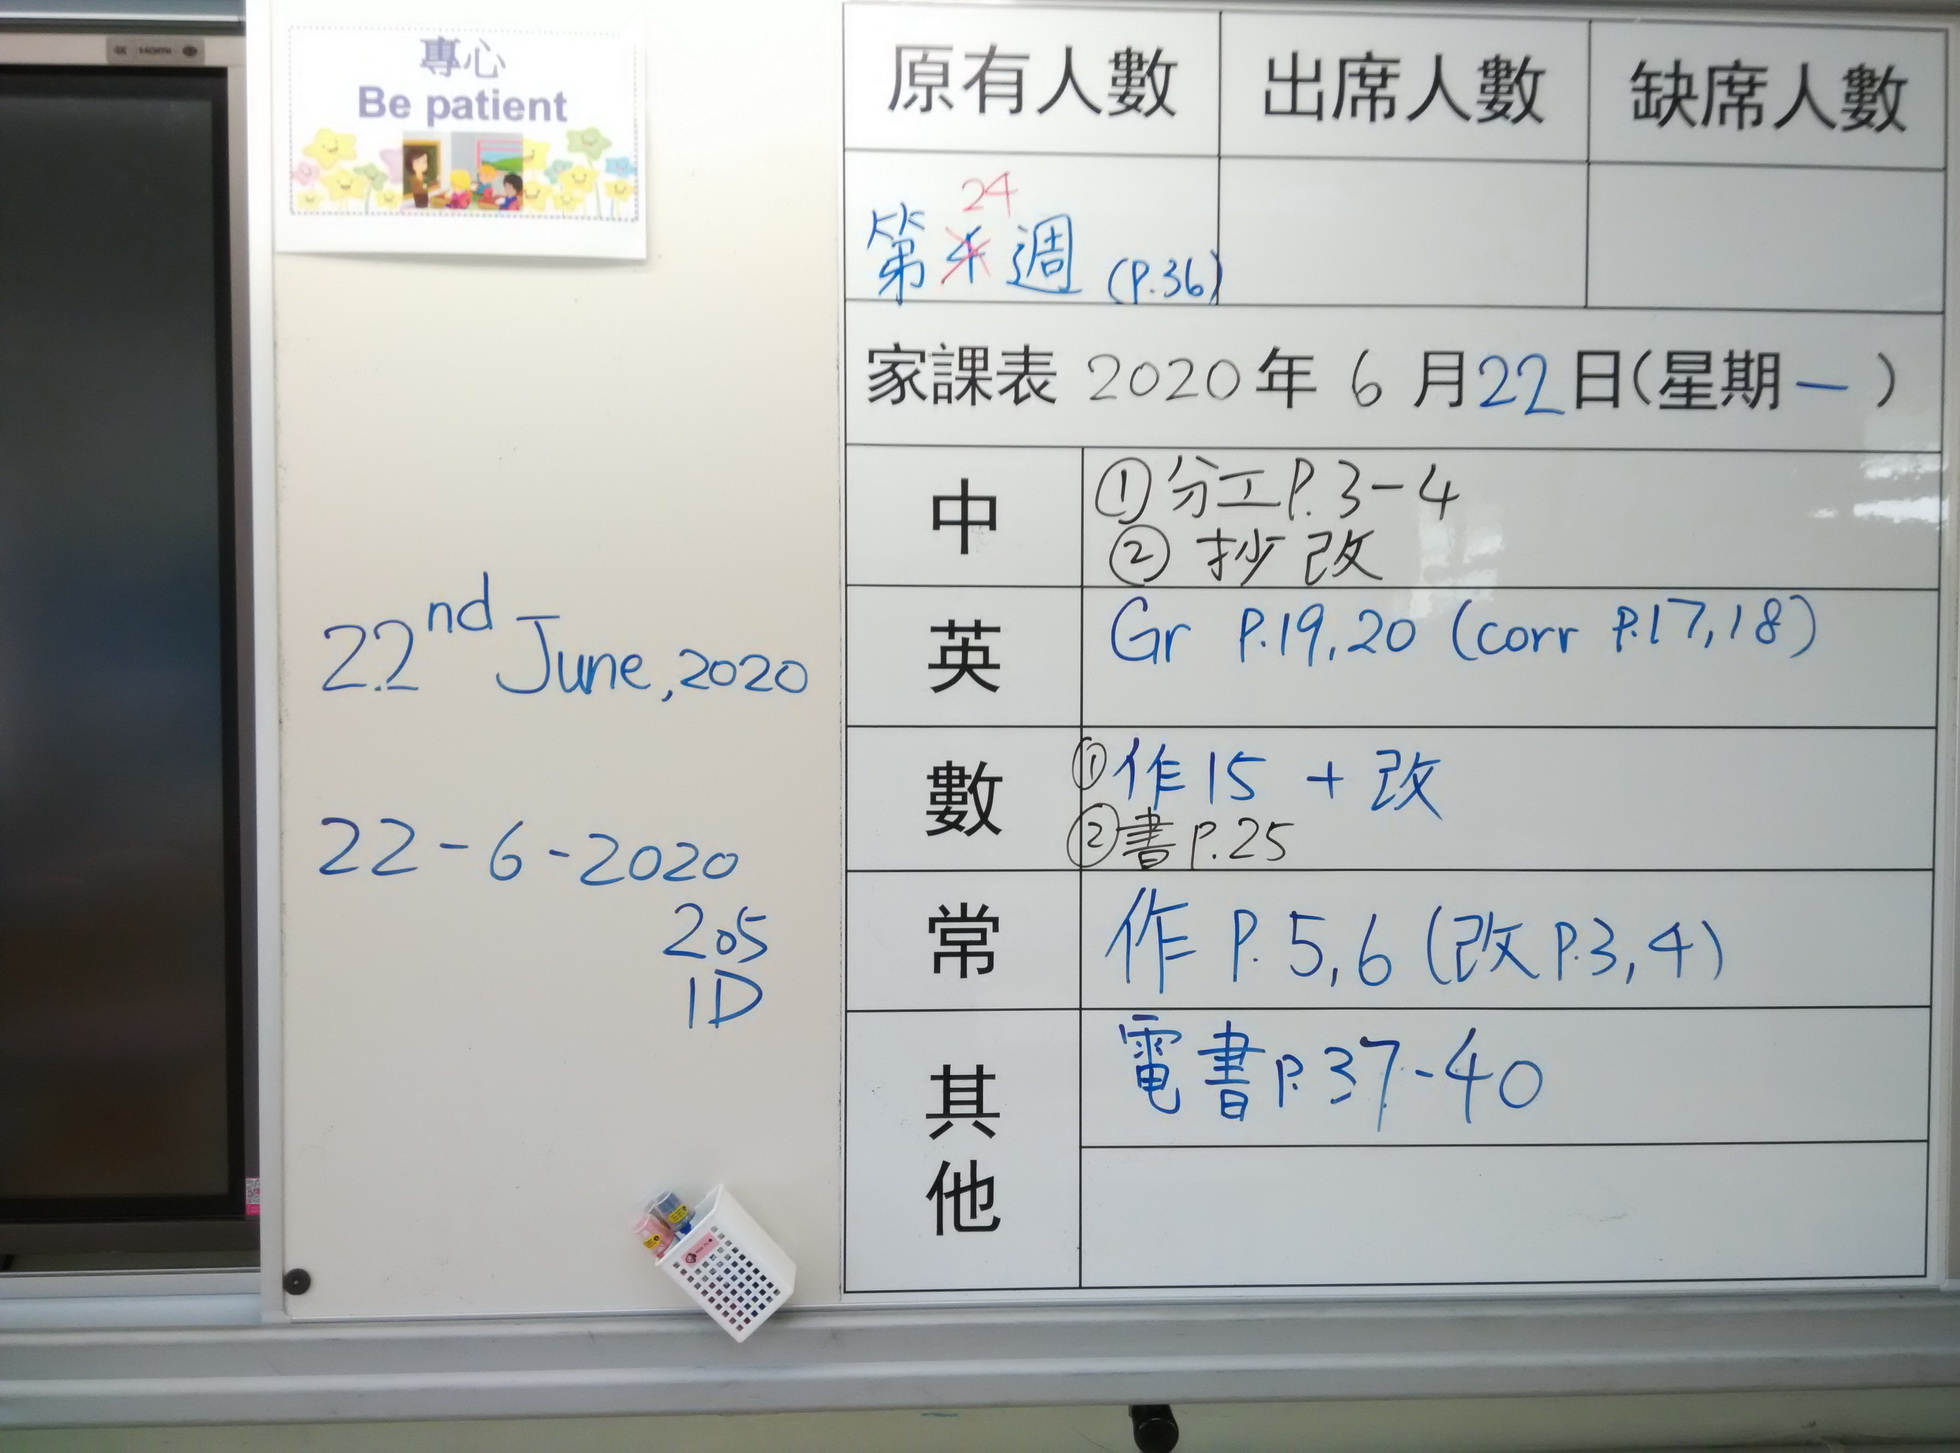 專心
Be patient
22nd June, 2020
22-6-2020
205
1D
原有人數 出席人數 缺席人數
24
第 週 (P.36)
家課表 2020年 6 月22日(星期一)
中 ①分工P.3-4
② 抄改
英 Gr P.19,20 (corr P.17,18)
數 ①作15 + 改
②書P.25
常 作 P.5,6 (改P.3,4)
其他 電書P.37-40